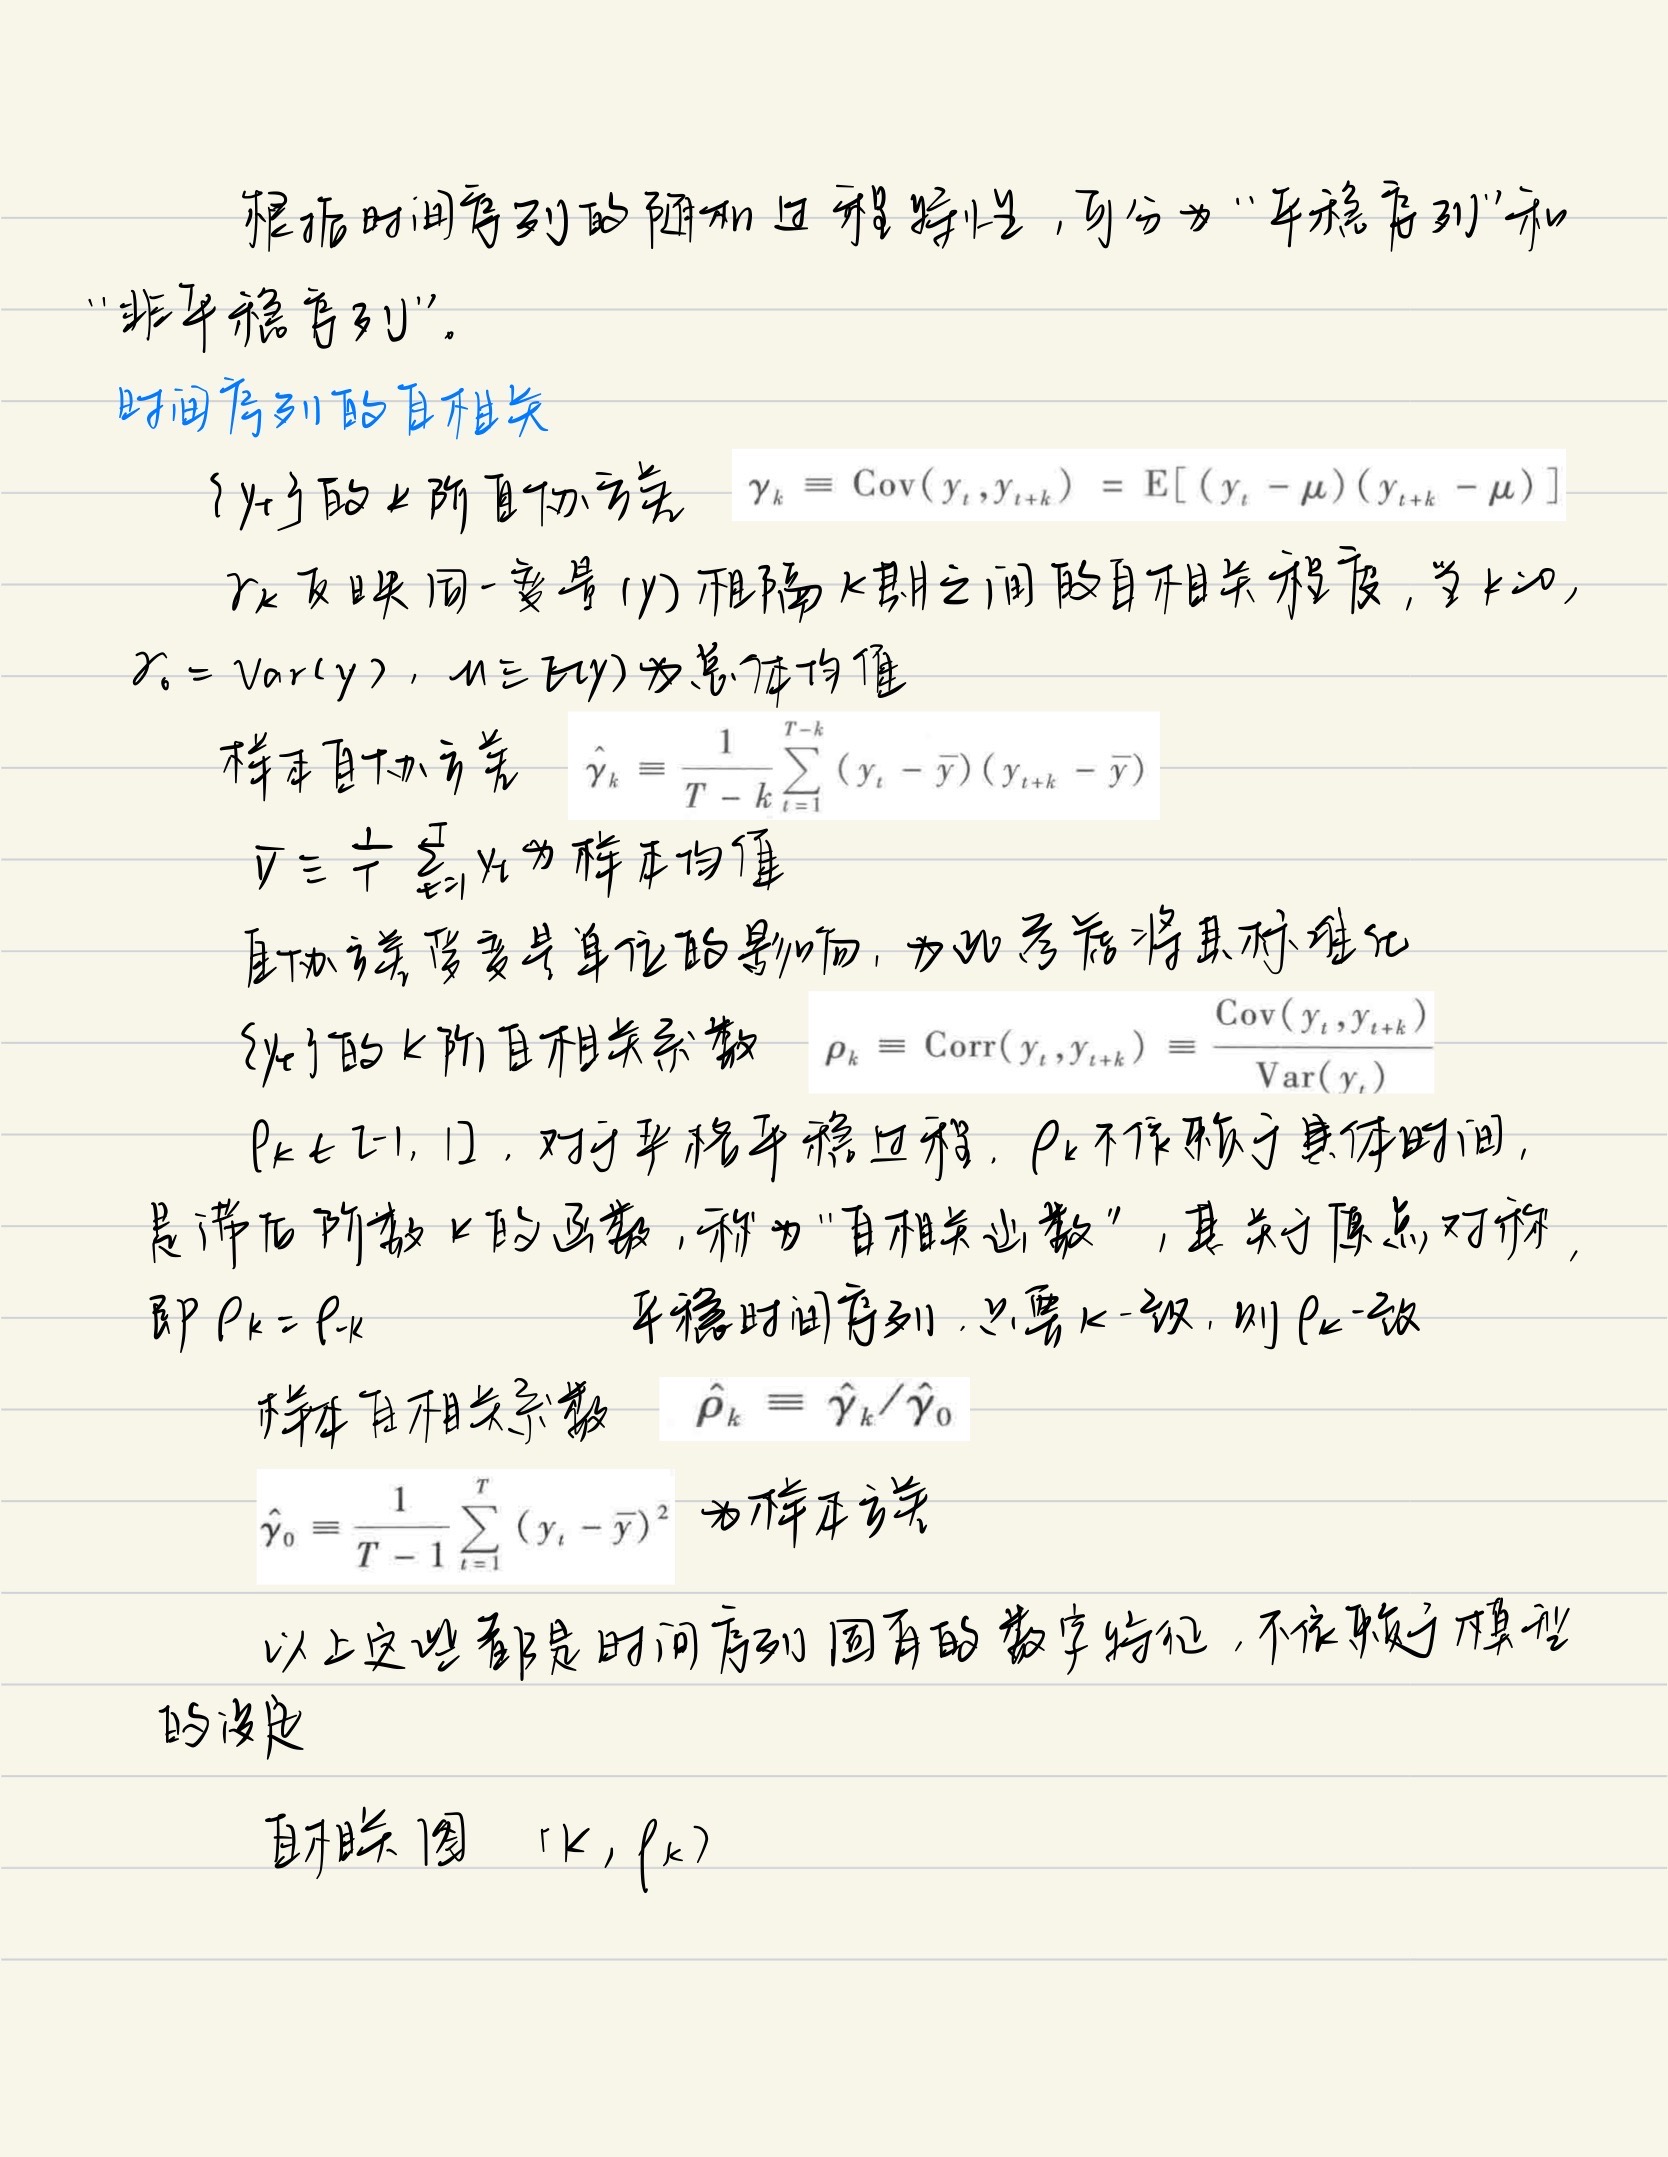 根据时间序列的随机过程特性，可分为“平稳序列”和
“非平稳序列”。
时间序列的自相关
{yₜ}的k阶自协方差 γₖ ≡ Cov(yₜ,yₜ₊ₖ) = E[(yₜ − μ)(yₜ₊ₖ − μ)]
γₖ反映同一变量(y)相隔k期之间的自相关程度，当k=0，
γ₀ = Var(y)，μ≡E(y)为总体均值
样本自协方差 γ̂ₖ ≡ 1/(T − k) ∑_{t=1}^{T−k} (yₜ − ȳ)(yₜ₊ₖ − ȳ)
ȳ ≡ 1/T ∑_{t=1}^{T} yₜ为样本均值
自协方差受变量单位的影响，为此考虑将其标准化
{yₜ}的k阶自相关系数 ρₖ ≡ Corr(yₜ,yₜ₊ₖ) ≡ Cov(yₜ,yₜ₊ₖ)/Var(yₜ)
ρₖ∈[-1,1]，对于严格平稳过程，ρₖ不依赖于具体时间，
是滞后阶数k的函数，称为“自相关函数”，其关于原点对称，
即ρₖ=ρ₋ₖ 平稳时间序列，只要k一致，则ρₖ一致
样本自相关系数 ρ̂ₖ ≡ γ̂ₖ/γ̂₀
γ̂₀ ≡ 1/(T − 1) ∑_{t=1}^{T} (yₜ − ȳ)² 为样本方差
以上这些都是时间序列固有的数字特征，不依赖于模型
的设定
自相关图 (k, ρₖ)